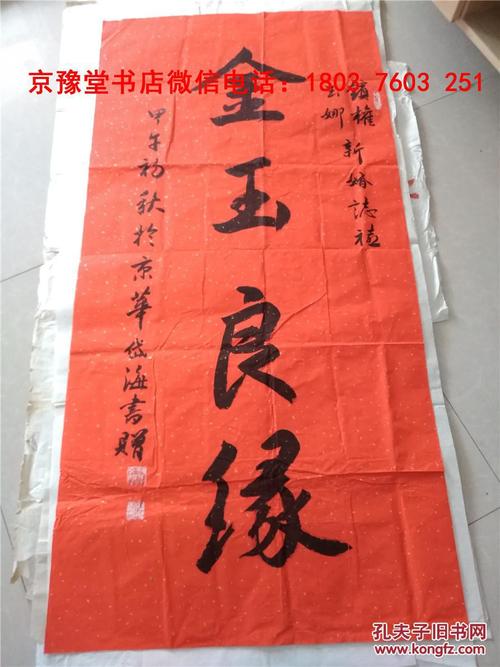 京豫堂书店微信电话：1803 7603 251
權
娜
新婚誌禧
金玉良缘
甲午初秋於京華岱海書贈
孔夫子旧书网
www.kongfz.com